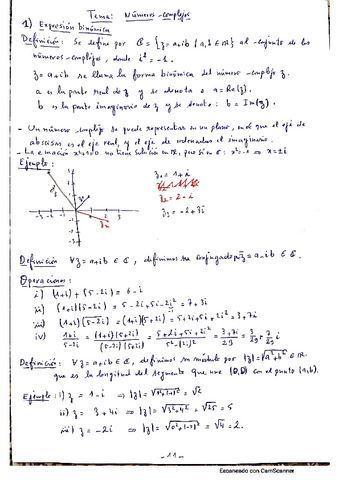 Tema: Números complejos
1) Expresión binómica
Definición: Se define por ℂ = {z = a+ib / a,b ∈ ℝ} al conjunto de los
números complejos, donde i² = -1.
z = a+ib se llama la forma binómica del número complejo z.
a es la parte real de z y se denota: a = Re(z).
b es la parte imaginaria de z y se denota: b = Im(z).
- Un número complejo se puede representar en un plano, en el que el eje de
abscisas es el eje real, y el eje de ordenadas el imaginario.
- La ecuación x²+1=0 no tiene solución en ℝ, pero sí en ℂ: x²=-1 ⇒ x=±i
Ejemplo:
z₁ = 1+i
z₂ = 2-i
z₃ = -2+3i
Definición ∀z = a+ib ∈ ℂ, definimos su conjugado por z̄ = a-ib ∈ ℂ.
Operaciones:
i) (1+i) + (5-2i) = 6-i
ii) (1+i)(5-2i) = 5-2i+5i-2i² = 7+3i
iii) (1+i)(5-2i) = (1+i)(5+2i) = 5+2i+5i+2i² = 3+7i
iv) 1+i/5-2i = (1+i)(5+2i)/(5-2i)(5+2i) = 5+2i+5i+2i²/5²-(2i)² = 3+7i/29 = 3/29 + 7/29 i
Definición: ∀z = a+ib ∈ ℂ, definimos su módulo por |z| = √a²+b² ∈ ℝ.
que es la longitud del segmento que une (0,0) con el punto (a,b).
Ejemplo: i) z = 1-i ⇒ |z| = √1²+(-1)² = √2
ii) z = 3+4i ⇒ |z| = √3²+4² = √25 = 5
iii) z = -2i ⇒ |z| = √0²+(-2)² = √4 = 2.
Escaneado con CamScanner